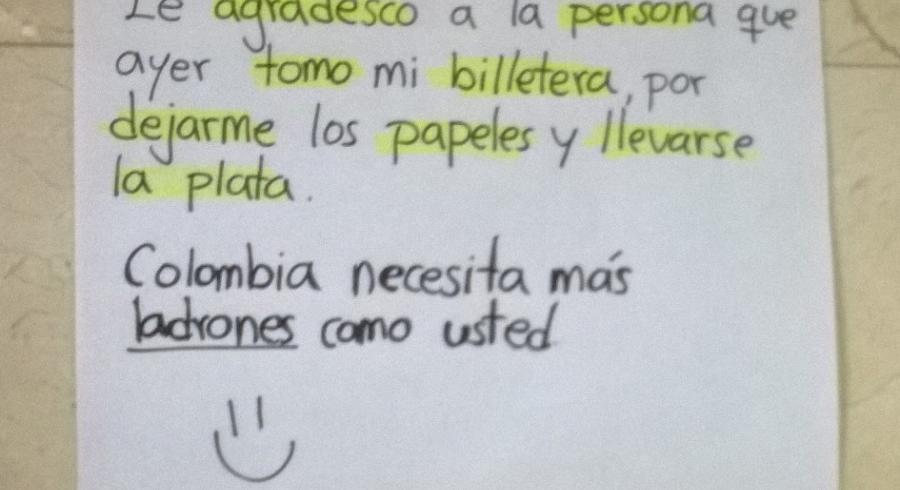 Le agradesco a la persona que
ayer tomo mi billetera, por
dejarme los papeles y llevarse
la plata.
Colombia necesita más
ladrones como usted